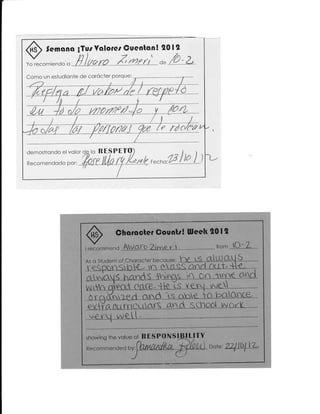 HS Semana ¡Tus Valores Cuentan! 2012
Yo recomiendo a Alvaro Zimeri de 10-2
Como un estudiante de carácter porque:
Refleja el valor del respeto
en todo momento y con
todas las personas que le rodean.
demostrando el valor de la: RESPETO
Recomendado por: Rose Mary Fecha: 23/10/12
HS Character Counts! Week 2012
I recommend Alvaro Zimeri from 10-2
As a Student of Character because: he is always
responsible in class and out. He
always hands things in on time and
with great care. He is very well
organized and is able to balance
extracurriculars and school work
very well.
showing the value of RESPONSIBILITY
Recommended by: Samantha Date: 22/10/12